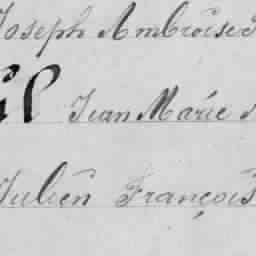 Joseph Ambroise
Jean Marie
Julien François